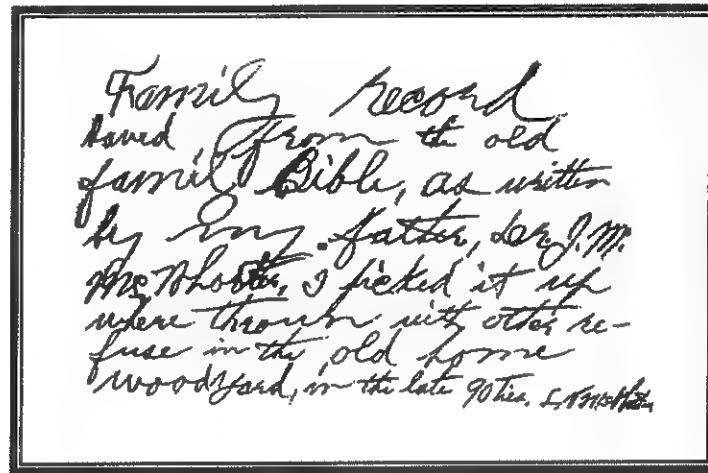 Family record
saved from the old
family Bible, as written
by my father, Dr. J. M.
McWhorter, I picked it up
where thrown with other re-
fuse in the old home
woodyard, in the late 90ties. L. V. McWhorter